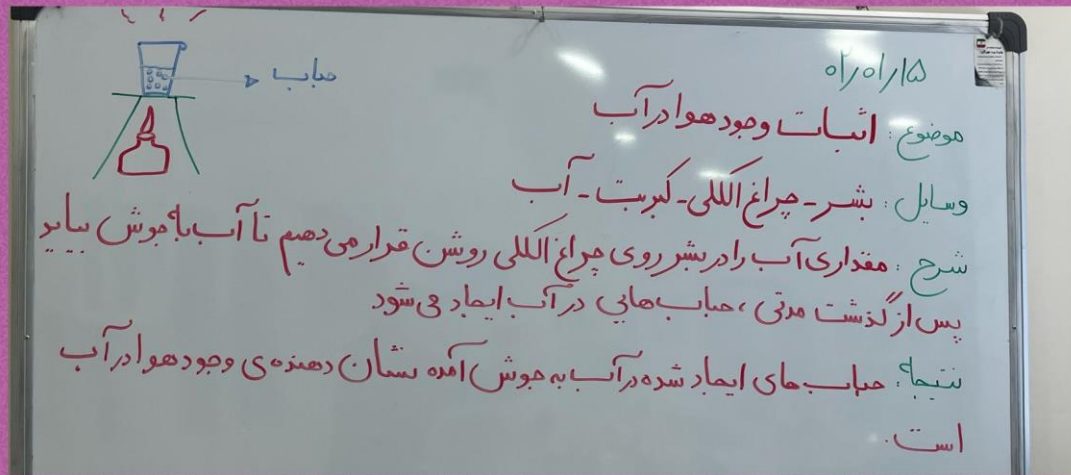 حباب
۰۲/۰۱/۱۵
موضوع: اثبات وجود هوا در آب
وسایل: بشر - چراغ الکلی - کبریت - آب
شرح: مقداری آب را در بشر روی چراغ الکلی روشن قرار می‌دهیم تا آب به جوش بیاید
پس از گذشت مدتی، حباب‌هایی در آب ایجاد می‌شود
نتیجه: حباب‌های ایجاد شده در آب به جوش آمده نشان دهنده‌ی وجود هوا در آب
است.